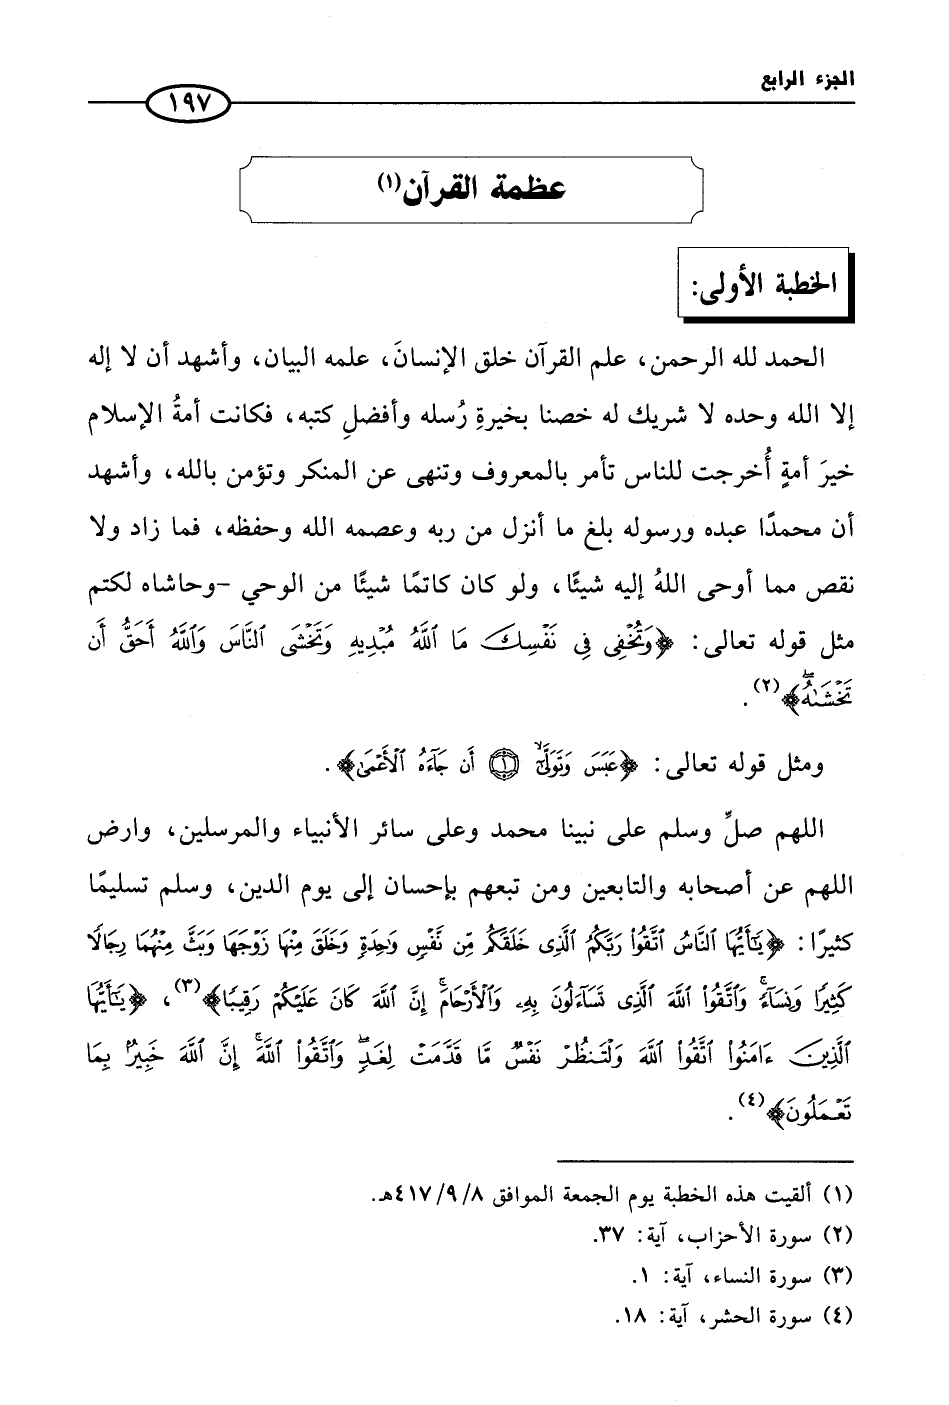 الجزء الرابع
١٩٧
عظمة القرآن(١)
الخطبة الأولى:
الحمد لله الرحمن، علم القرآن خلق الإنسانَ، علمه البيان، وأشهد أن لا إله
إلا الله وحده لا شريك له خصنا بخيرةِ رُسله وأفضلِ كتبه، فكانت أمةُ الإسلام
خيرَ أمةٍ أُخرجت للناس تأمر بالمعروف وتنهى عن المنكر وتؤمن بالله، وأشهد
أن محمدًا عبده ورسوله بلغ ما أنزل من ربه وعصمه الله وحفظه، فما زاد ولا
نقص مما أوحى اللهُ إليه شيئًا، ولو كان كاتمًا شيئًا من الوحي -وحاشاه لكتم
مثل قوله تعالى: ﴿وَتُخْفِى فِى نَفْسِكَ مَا ٱللَّهُ مُبْدِيهِ وَتَخْشَى ٱلنَّاسَ وَٱللَّهُ أَحَقُّ أَن
تَخْشَىٰهُ ۖ﴾(٢).
ومثل قوله تعالى: ﴿عَبَسَ وَتَوَلَّىٰٓ ۙ ۝١ أَن جَآءَهُ ٱلْأَعْمَىٰ﴾.
اللهم صلِّ وسلم على نبينا محمد وعلى سائر الأنبياء والمرسلين، وارض
اللهم عن أصحابه والتابعين ومن تبعهم بإحسان إلى يوم الدين، وسلم تسليمًا
كثيرًا: ﴿يَـٰٓأَيُّهَا ٱلنَّاسُ ٱتَّقُوا۟ رَبَّكُمُ ٱلَّذِى خَلَقَكُم مِّن نَّفْسٍ وَٰحِدَةٍ وَخَلَقَ مِنْهَا زَوْجَهَا وَبَثَّ مِنْهُمَا رِجَالًا
كَثِيرًا وَنِسَآءً ۚ وَٱتَّقُوا۟ ٱللَّهَ ٱلَّذِى تَسَآءَلُونَ بِهِۦ وَٱلْأَرْحَامَ ۚ إِنَّ ٱللَّهَ كَانَ عَلَيْكُمْ رَقِيبًا﴾(٣)، ﴿يَـٰٓأَيُّهَا
ٱلَّذِينَ ءَامَنُوا۟ ٱتَّقُوا۟ ٱللَّهَ وَلْتَنظُرْ نَفْسٌ مَّا قَدَّمَتْ لِغَدٍ ۖ وَٱتَّقُوا۟ ٱللَّهَ ۚ إِنَّ ٱللَّهَ خَبِيرٌۢ بِمَا
تَعْمَلُونَ﴾(٤).
(١) ألقيت هذه الخطبة يوم الجمعة الموافق ٤١٧/٩/٨هـ.
(٢) سورة الأحزاب، آية: ٣٧.
(٣) سورة النساء، آية: ١.
(٤) سورة الحشر، آية: ١٨.